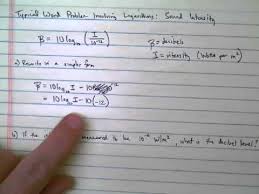 Typical Word Problem Involving Logarithms: Sound Intensity
β = 10 log₁₀ (I / 10⁻¹²)
β = decibels
I = intensity (Watts per m²)
a) Rewrite in a simpler form
β = 10 log₁₀ I − 10 10⁻¹²
= 10 log₁₀ I − 10(−12)
b) If the is measured to be 10⁻⁶ W/m², what is the decibel level?